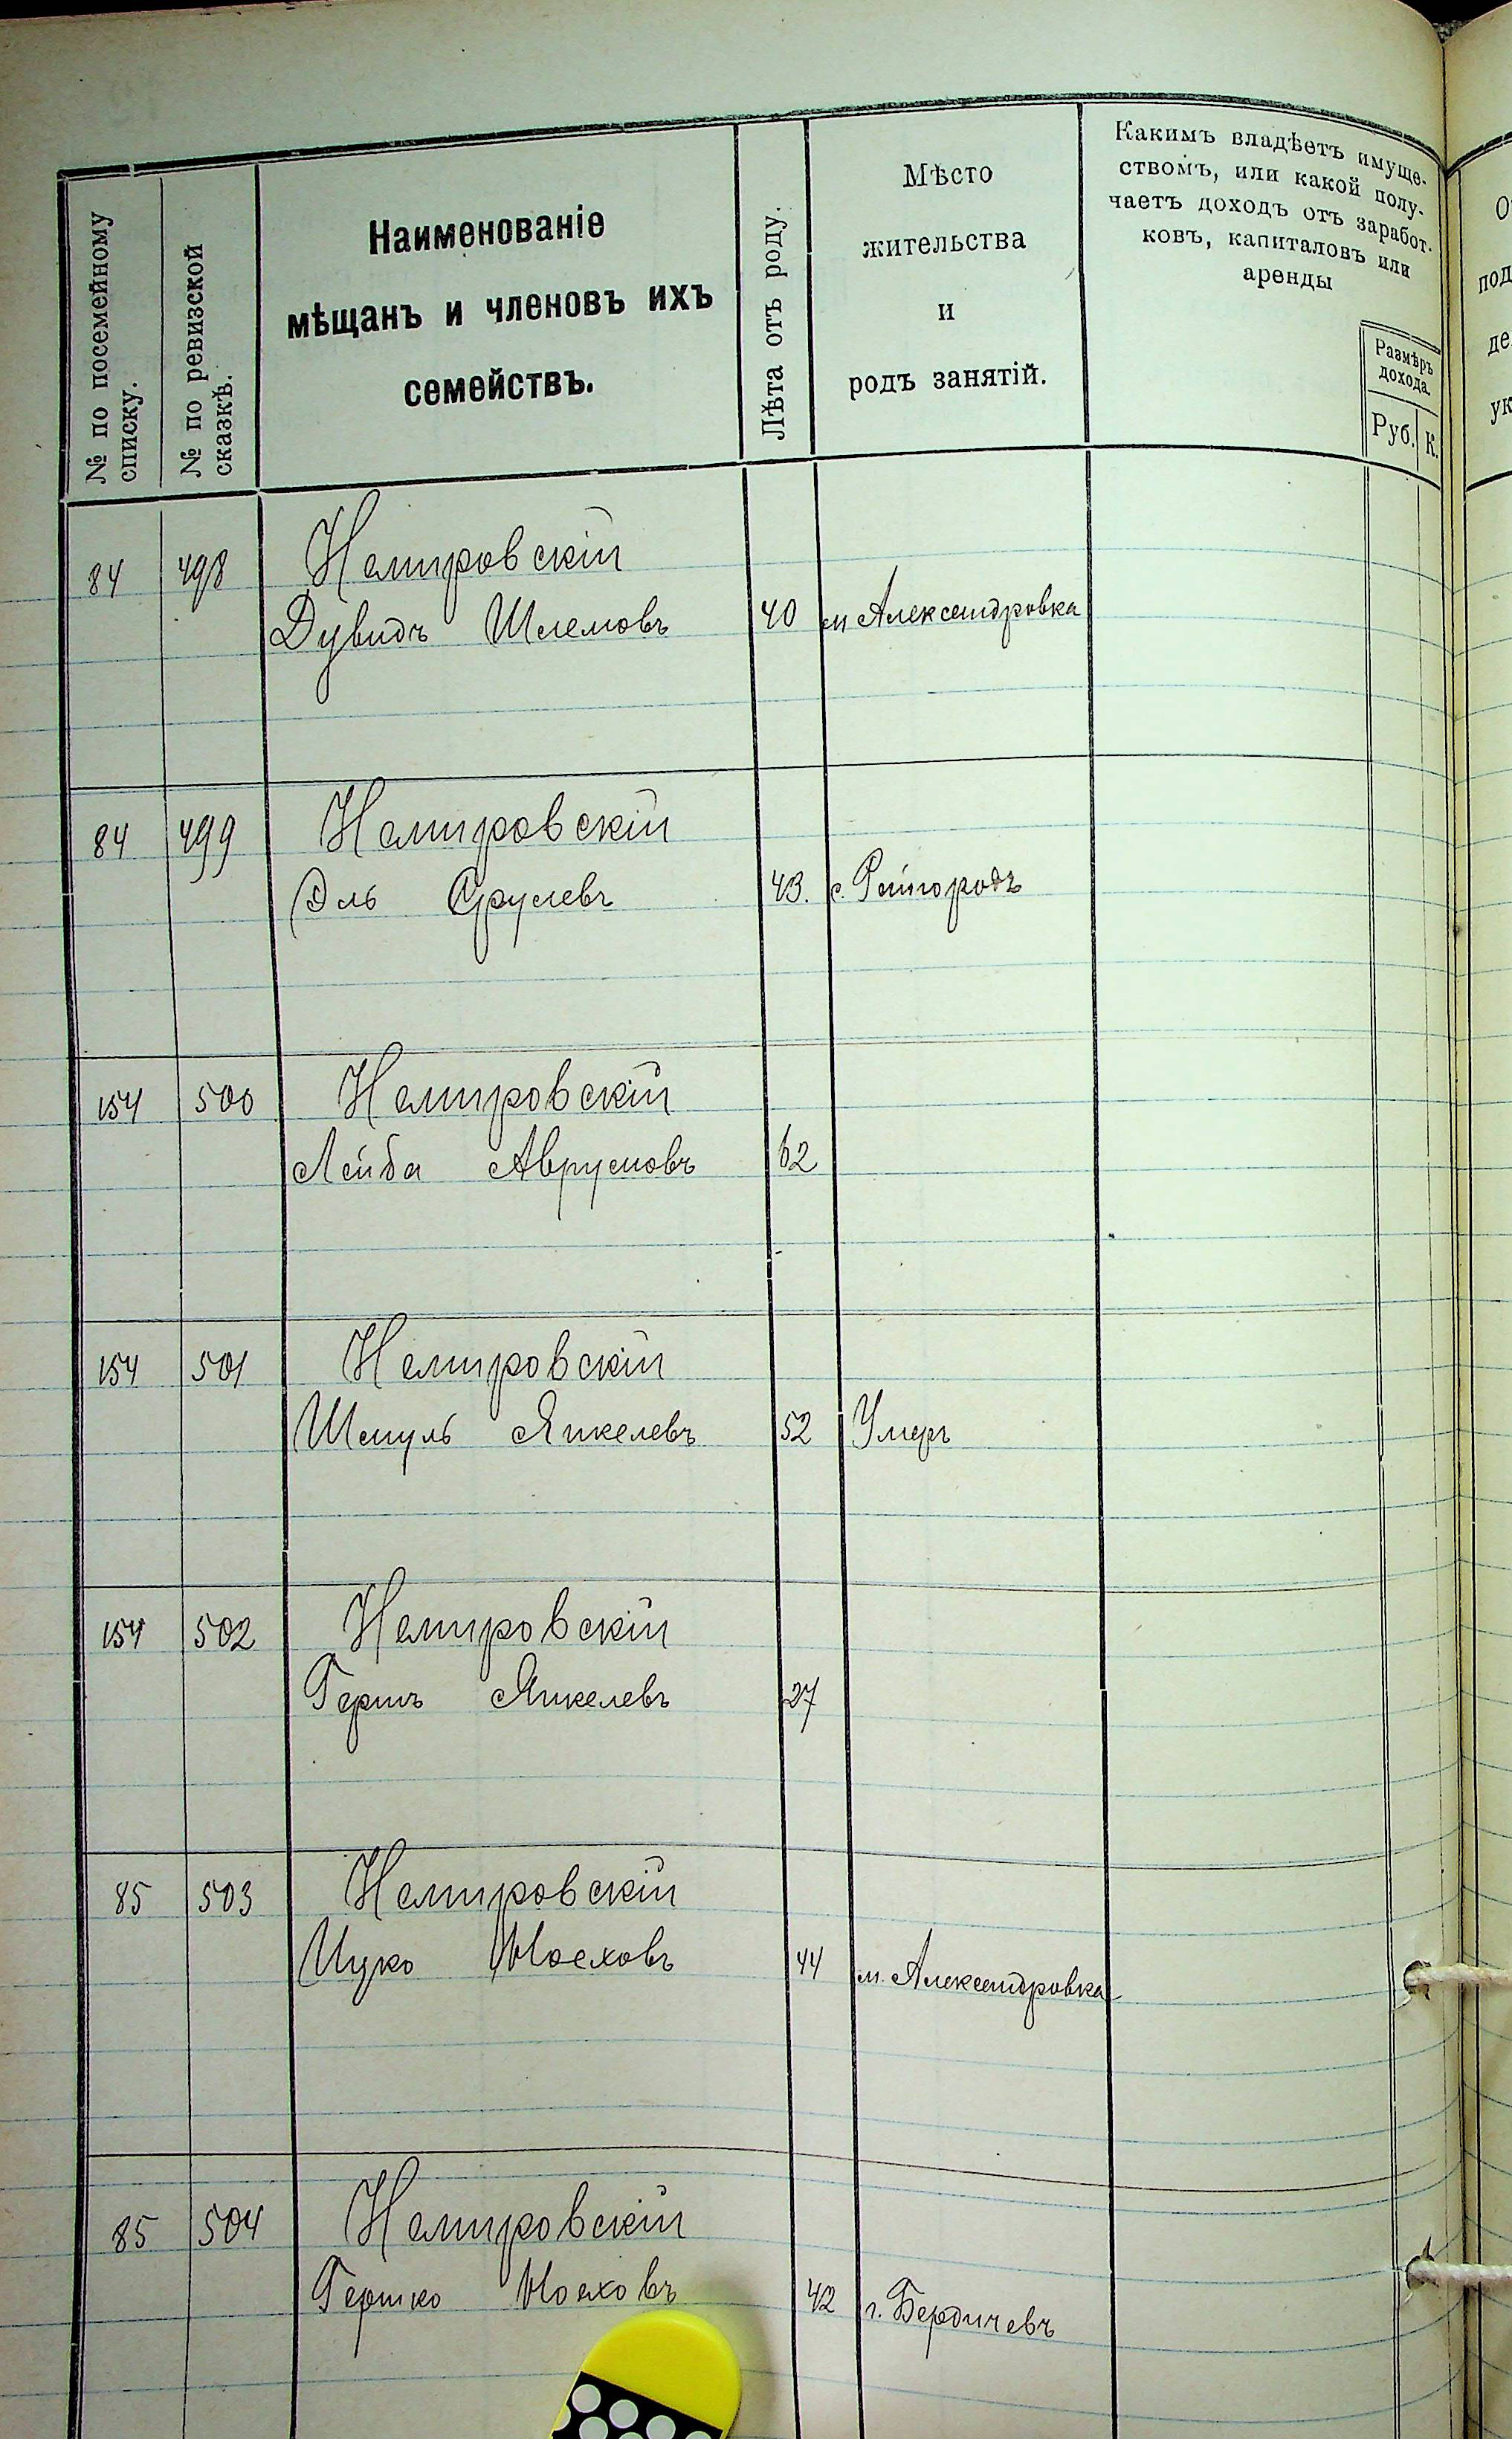 № по посемейному
списку.
№ по ревизской
сказкѣ.
Наименованіе
мѣщанъ и членовъ ихъ
семействъ.
Лѣта отъ роду.
Мѣсто
жительства
и
родъ занятій.
Какимъ владѣетъ имуще-
ствомъ, или какой полу-
чаетъ доходъ отъ заработ-
ковъ, капиталовъ или
аренды
Размѣръ
дохода.
Руб. К.
84 498 Немировскій
Дувидъ Шлемовъ 40 м Александровка
84 499 Немировскій
Эль Срулевъ 43. с. Райгородъ
154 500 Немировскій
Лейба Аврумовъ 62
154 501 Немировскій
Шмуль Янкелевъ 52 Умеръ
154 502 Немировскій
Гершъ Янкелевъ 27
85 503 Немировскій
Ицко Ноеховъ 44 м. Александровка
85 504 Немировскій
Гершко Ноеховъ 42 г. Бердичевъ